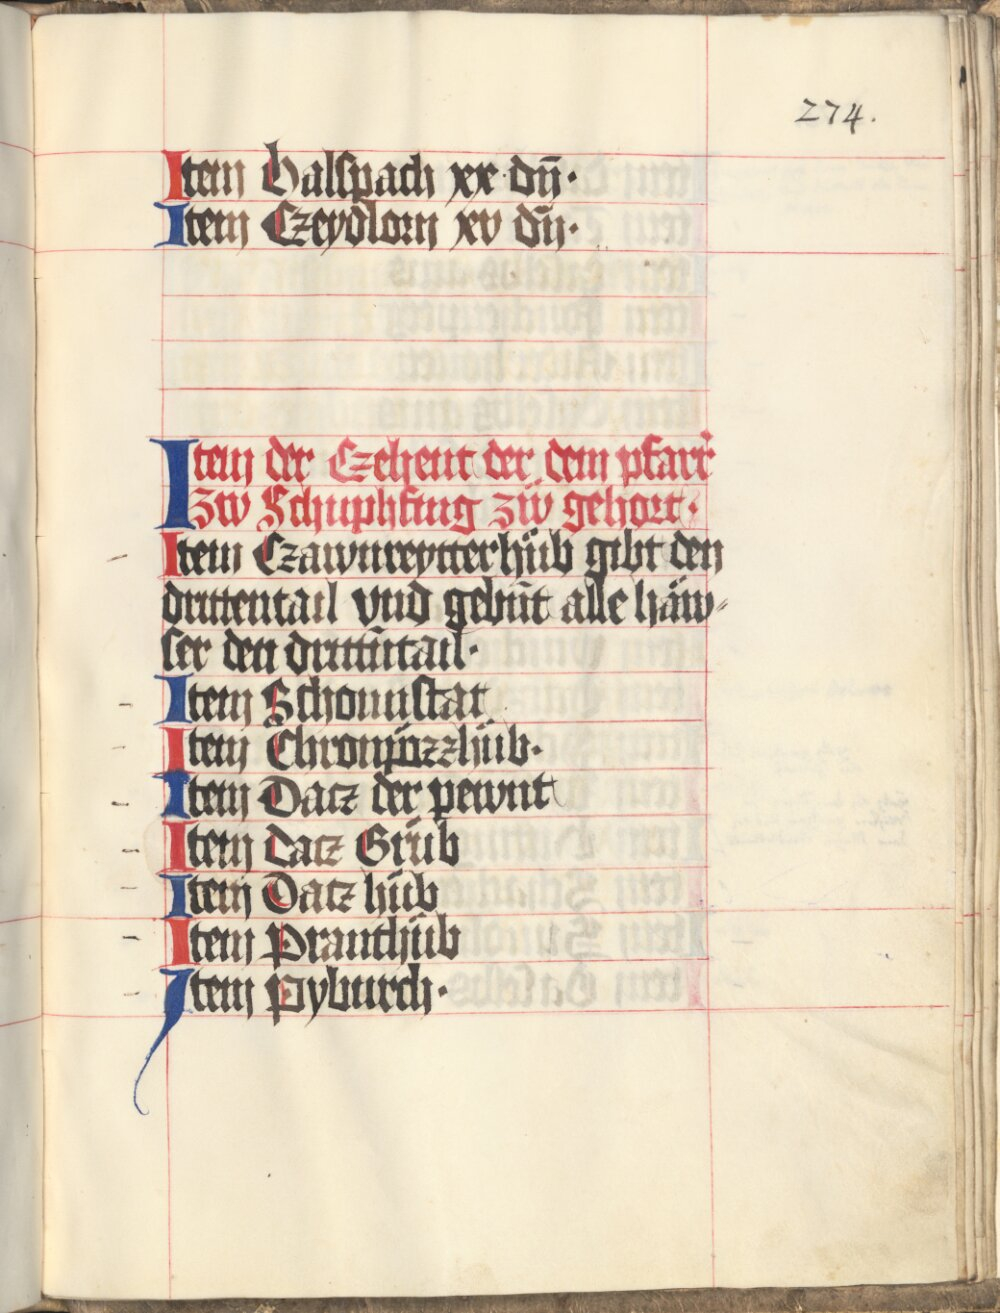 274.
Item Halspach xx dn̄·
Item Czeydlorn xv dn̄·
Item der Czehent der dem pfarr̄
zw Schuphfing zw̄ gehort·
Item Czawnreytterhüb gibt den
drittentail vnd gebn̄t alle häw⸗
ser den drittn̄tail·
Item Schonnstat
Item Chronpözzhüb·
Item Datz der pewnt
Item Datz Grüb
Item Datz hüb
Item Pranthüb
Item Pyburch·